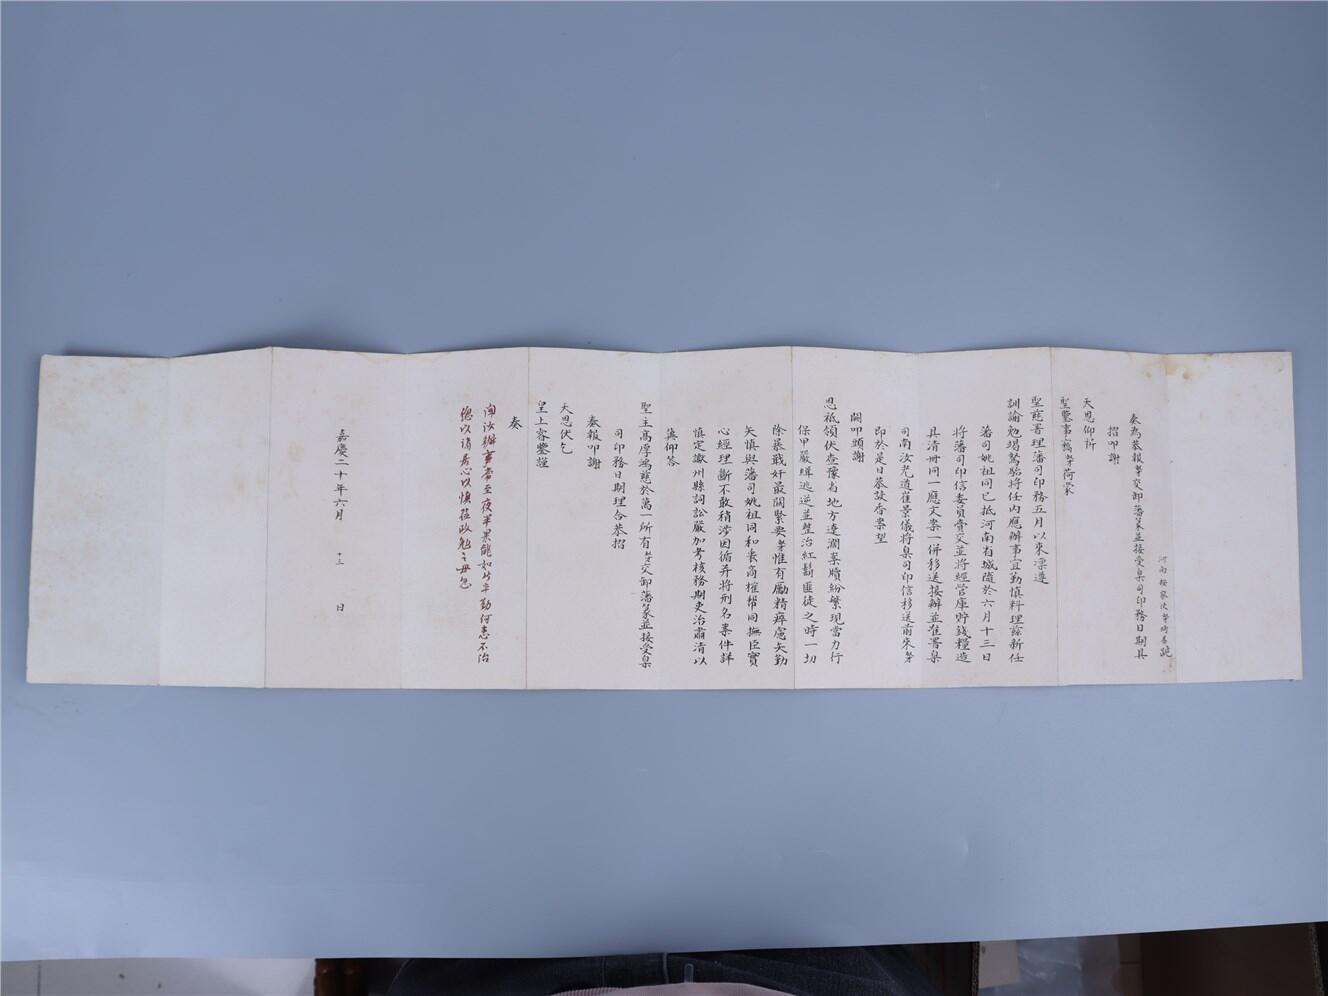 河南按察使奴才琦善跪
奏為恭報奴才交卸藩篆並接受臬司印務日期具
摺叩謝
天恩仰祈
聖鑒事竊奴才荷蒙
聖慈署理藩司印務五月以來凜遵
訓諭勉竭駑駘將任內應辦事宜勤慎料理茲新任
藩司姚祖同已抵河南省城隨於六月十三日
將藩司印信委員賫交並將經管庫貯錢糧造
具清冊同一應文案一併移送接辦並准署臬
司南汝光道崔景儀將臬司印信移送前來奴才
即於是日恭設香案望
闕叩頭謝
恩祗領伏查豫省地方遼濶案牘紛繁現當力行
保甲嚴緝逃逆並整治紅鬍匪徒之時一切
除暴戢奸最關緊要奴才惟有勵精瘁慮矢勤
矢慎與藩司姚祖同和衷商榷幫同撫臣實
心經理斷不敢稍涉因循并將刑名案件詳
慎定讞州縣詞訟嚴加考核務期吏治肅清以
冀仰答
聖主高厚鴻慈於萬一所有奴才交卸藩篆並接受臬
司印務日期理合恭摺
奏報叩謝
天恩伏乞
皇上睿鑒謹
奏
聞汝辦事常至夜半果能如此辛勤何患不治
總以誠字存心以慎蒞政勉之毋怠
嘉慶二十年六月 十三 日